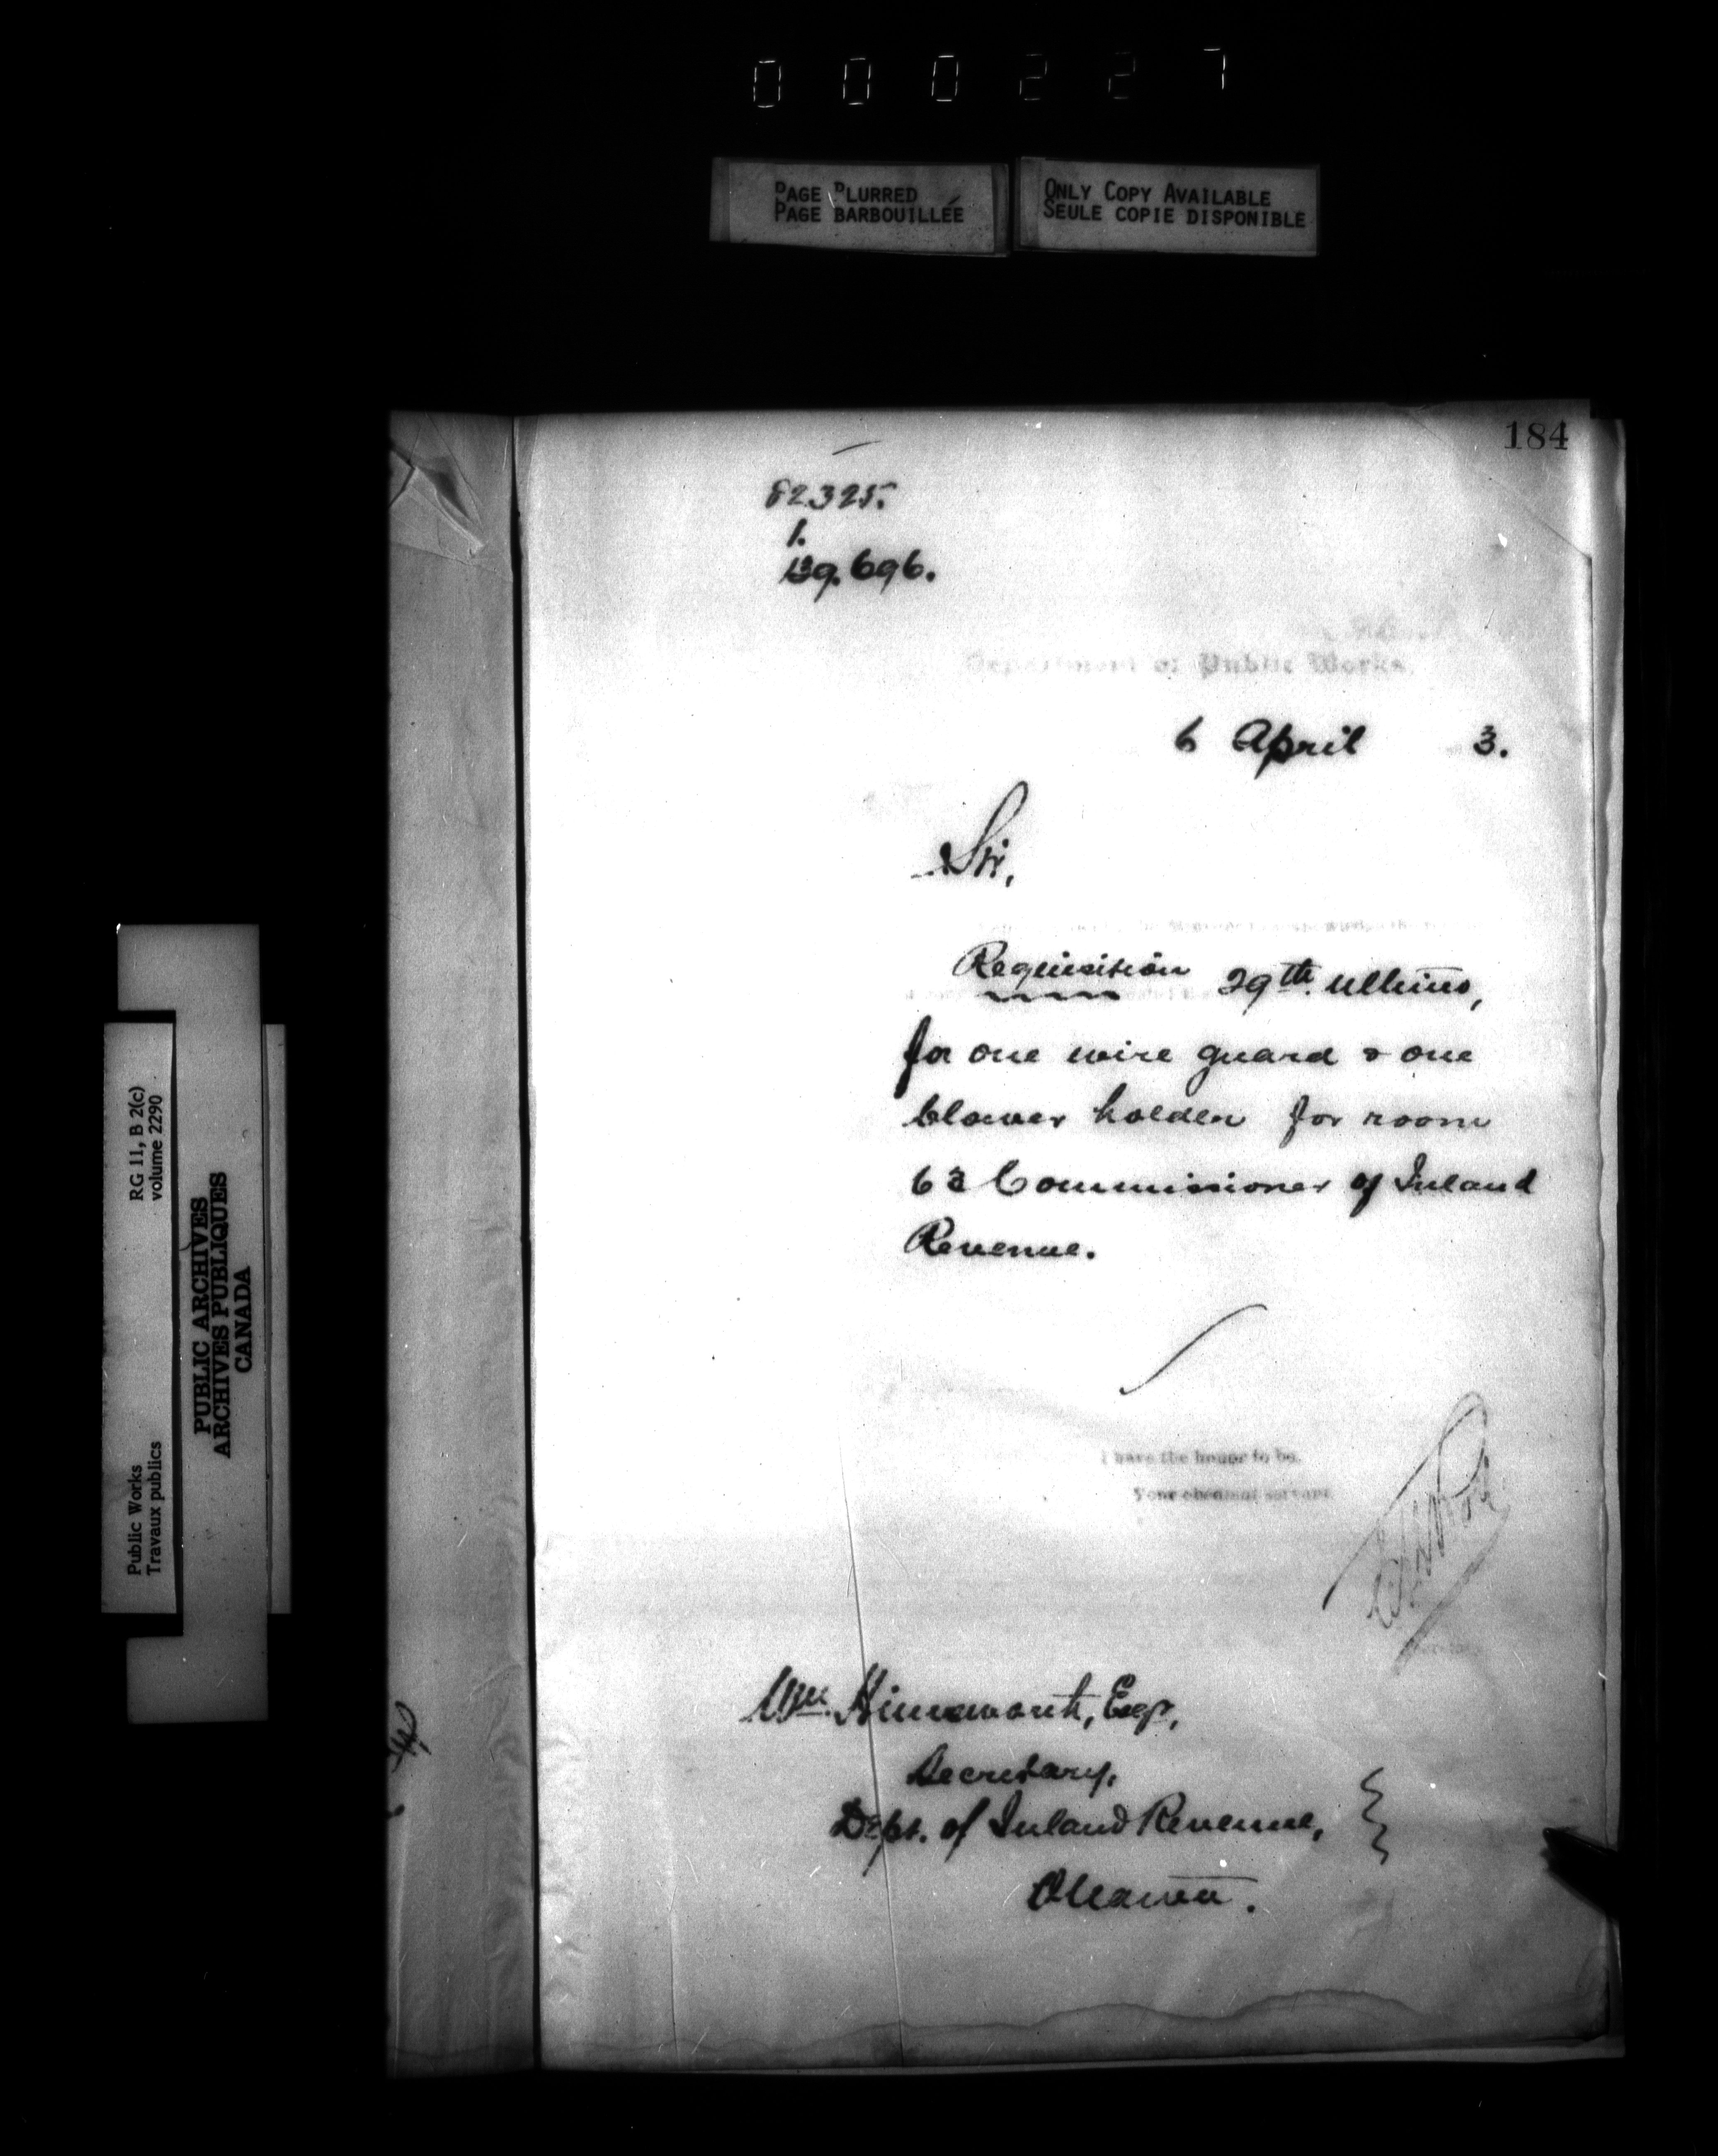 000227
PAGE BLURRED
PAGE BARBOUILLÉE
ONLY COPY AVAILABLE
SEULE COPIE DISPONIBLE
184
82325.
1.
696.
Department of Public Works.
6 April 3.
Sir,
Requisition 29th. ultimo,
for one wire guard & one
blower holder for room
63 Commissioner of Inland
Revenue.
I have the honor to be,
Your obedient servant
Wm. Himsworth, Esqr,
Secretary,
Dept. of Inland Revenue,
Ottawa.
RG 11, B 2(c)
volume 2290
Public Works
Travaux publics
PUBLIC ARCHIVES
ARCHIVES PUBLIQUES
CANADA